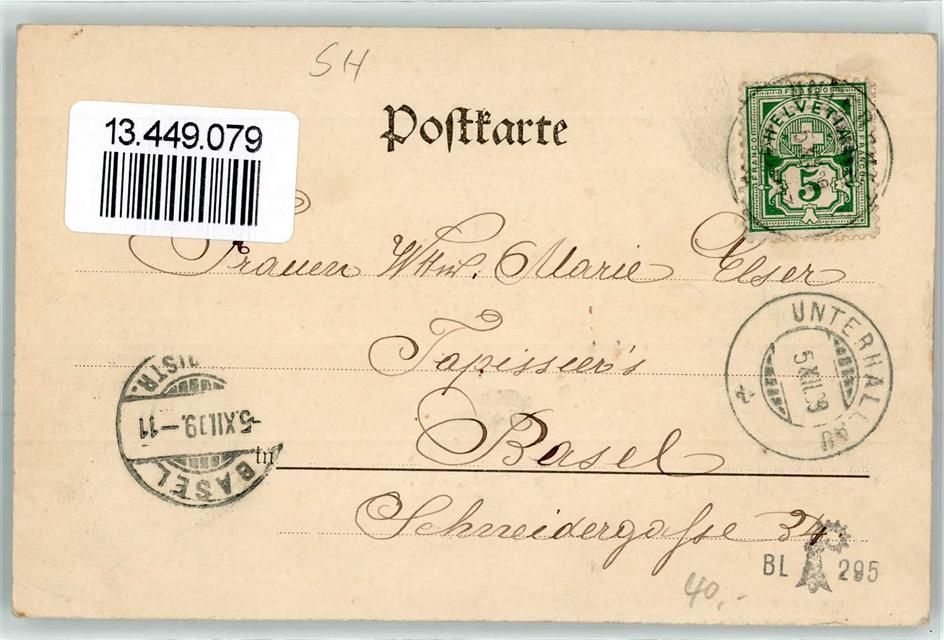 SH
13.449.079
Postkarte
FRANCO
HELVETIA
FRANCO FRANCO
5
Frauen Wtw. Marie Elser
Tapissier's
UNTERHALLAU
5 XII.09
BASEL
-5XII.09.-11
in Basel
Schneidergasse 34.
BL 295
40.-